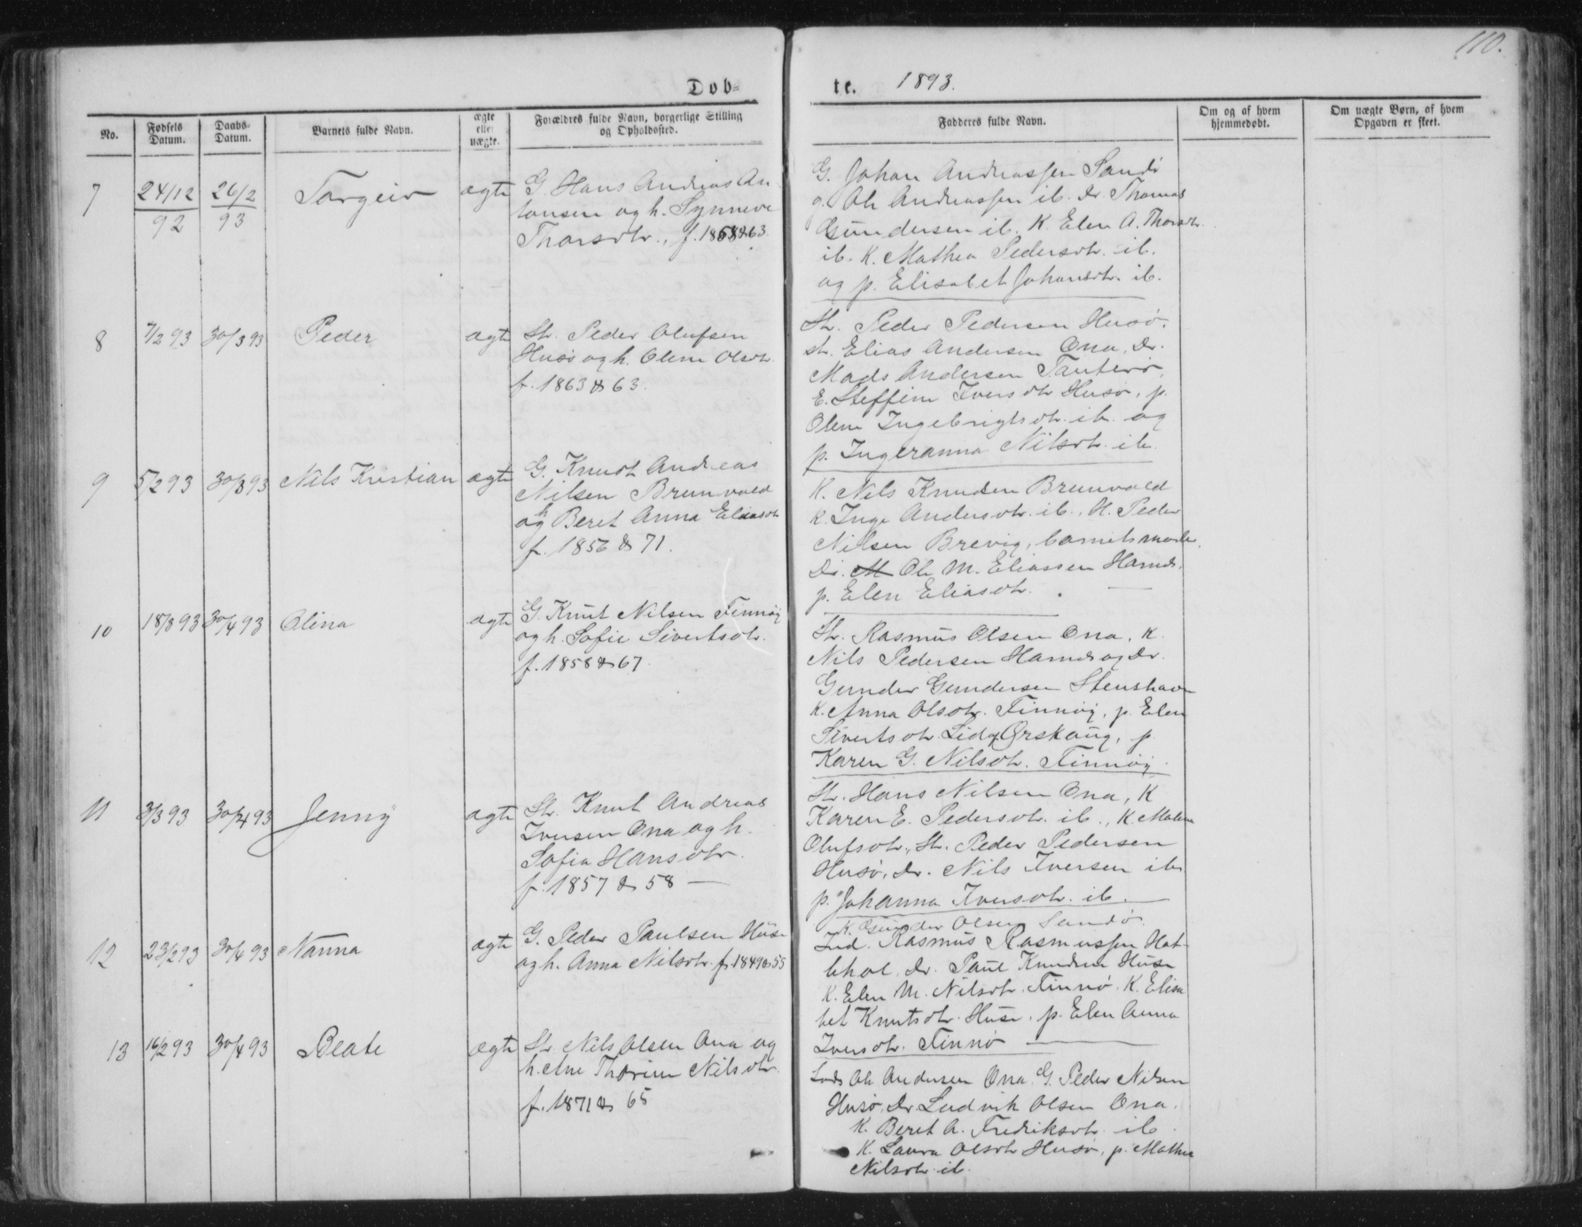 110.
Døb=
te. 1893.
No.
Fødsels Datum.
Daabs-Datum.
Barnets fulde Navn.
ægte eller uægte.
Forældres fulde Navn, borgerlige Stilling og Opholdssted.
Fadderes fulde Navn.
Om og af hvem hjemmedøbt.
Om uægte Børn, af hvem Opgaven er skeet.
7 24/12 92 26/2 93 Torgeir ægte
G. Hans Andreas An-
tonsen og h. Synneve
Thorsdtr., f. 1868 & 63
G. Johan Andreassen Sandø
g. Ole Andreassen ib. Dr. Thomas
Gundersen ib. K. Elen A. Thorsdtr.
ib. K. Mathea Pedersdtr. ib.
og p. Elisabet Johansdtr. ib.
8 7/2 93 30/3 93 Peder ægte
Str. Peder Olufsen
Husø og h. Oline Olsdtr.
f. 1863 & 63.
Str. Peder Pedersen Husø.
st. Elias Andersen Ona, Dr.
Mads Andersen
E. Steffine Iversdtr Husø, p.
Oline Ingebrigtsdtr. ib. og
p. Ingeranna Nilsdtr. ib.
9 5/2 93 30/3 93 Nils Kristian ægte
G. Knudt Andreas
Nilsen Brunvold
og h Beret Anna Eliasdtr
f. 1856 & 71.
K. Nils Knudsen Brunvold
k. Inga Andersdtr. ib. K. Peder
Nilsen Brevig, barnets moder.
Dr. Ole M. Eliassen Harnes.
p. Elen Eliasdtr.
10 18/3 93 30/4 93 Alina ægte
G. Knut Nilsen Finnøy
og h. Sofie Sivertsdtr.
f. 1858 & 67.
Str. Rasmus Olsen Ona, K.
Nils Pedersen Harnes og Dr.
Gunder Gundersen Stenshavn
K. Anna Olsdtr. Finnøy, p. Elen
Sivertsdtr. Lidø Ørskoug, p
Karen G. Nilsdtr. Finnøy.
11 3/3 93 30/4 93 Jenny ægte
Str. Knut Andreas
Iversen Ona og h.
Sofia Hansdtr.
f. 1857 & 58 —
Str. Hans Nilsen Ona, K
Karen E. Pedersdtr. ib., K Malene
Olufsdtr., Str. Peder Pedersen
Husø, Dr. Nils Iversen ib
p. Johanna Iversdtr. ib.
12 23/2 93 30/4 93 Nanna ægte
G. Peder Paulsen Huse
og h. Anna Nilsdtr. f. 1849 & 55
K. Gunder Olsen Sandø.
Led. Rasmus Rasmussen Hat-
lehol, Dr. Paul Knudsen Huse
K. Elen M. Nilsdtr. Finnø. K. Elisa
bet Knutsdtr. Huse. p. Elen Anna
Iversdtr. Finnø —
13 16/2 93 30/4 93 Beate ægte
Str. Nils Olsen Ona og
h. Ane Thorine Nilsdtr.
f. 1871 & 65
Lods Ole Andersen Ona. G. Peder Nilsen
Husø, Dr Ludvik Olsen Ona.
K. Beret A. Fredriksdtr. ib.
K. Laura Olsdtr Husø, p. Mathea
Nilsdtr. ib.